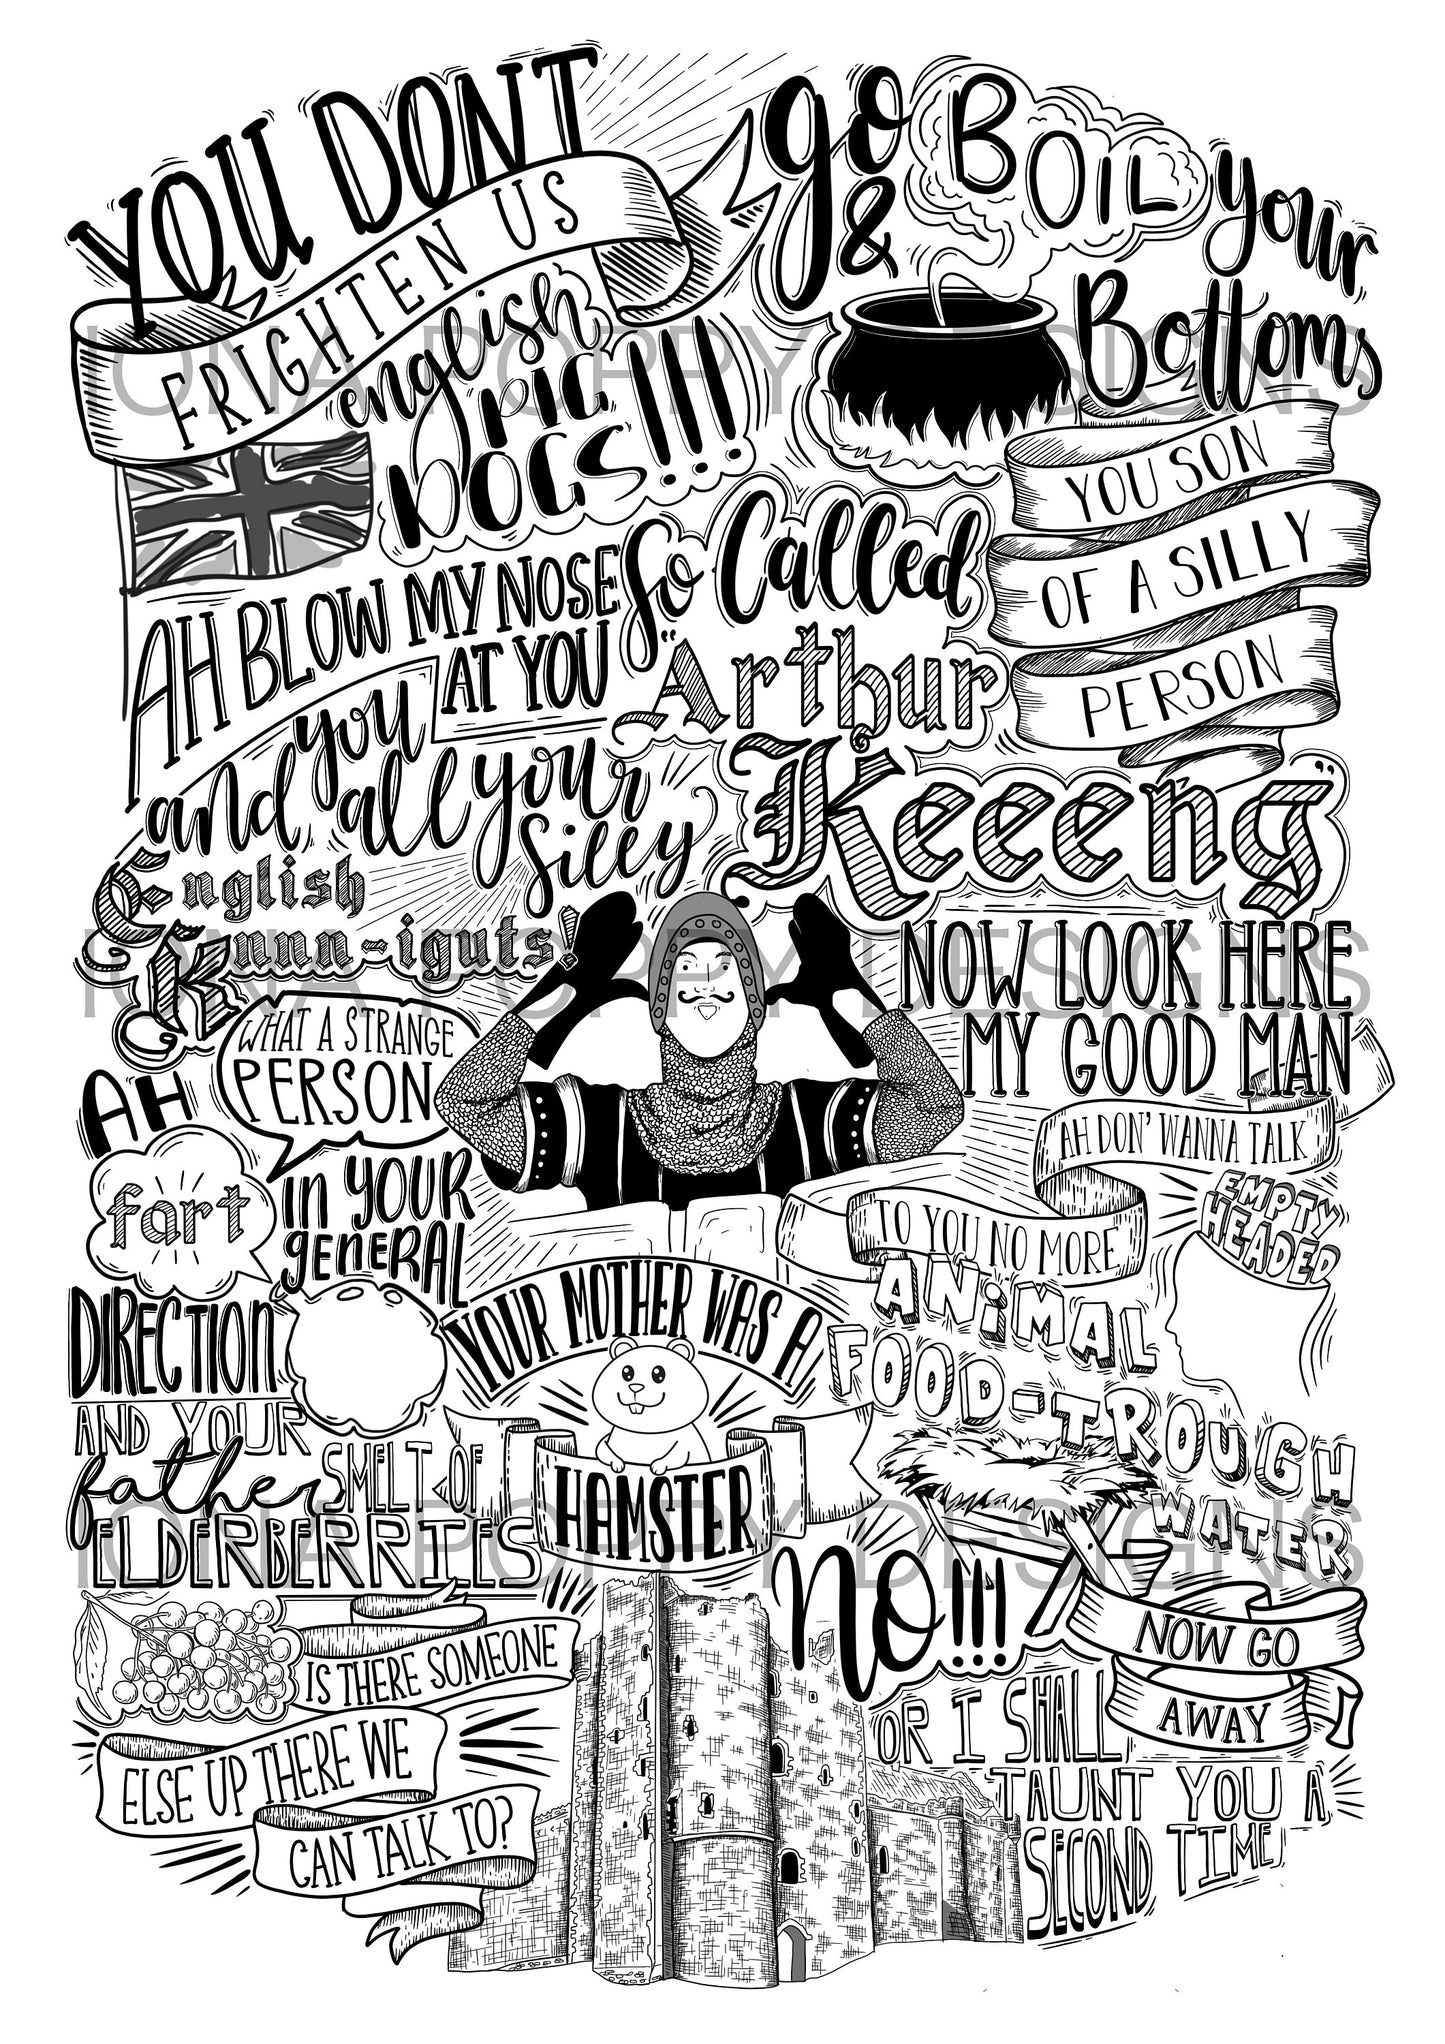 YOU DONT
FRIGHTEN US
english
PIG
DOGS!!!
go
&
BOIL
your
Bottoms
YOU SON
OF A SILLY
PERSON
AH BLOW MY NOSE
AT YOU
So Called
"Arthur
Keeeng"
you
and all your
silly
English
Knnn-iguts!
WHAT A STRANGE
PERSON
NOW LOOK HERE
MY GOOD MAN
AH DON' WANNA TALK
TO YOU NO MORE
EMPTY
HEADED
ANiMAL
FOOD-TROUGH
WATER
AH
fart
in YOUR
GENERAL
DIRECTION
YOUR MOTHER WAS A
HAMSTER
AND YOUR
father SMELT OF
ELDERBERRIES
IS THERE SOMEONE
ELSE UP THERE WE
CAN TALK TO?
NO!!!
NOW GO
AWAY
OR I SHALL
TAUNT YOU A
SECOND TIME
IONA POPPY DESIGNS
IONA POPPY DESIGNS
IONA POPPY DESIGNS